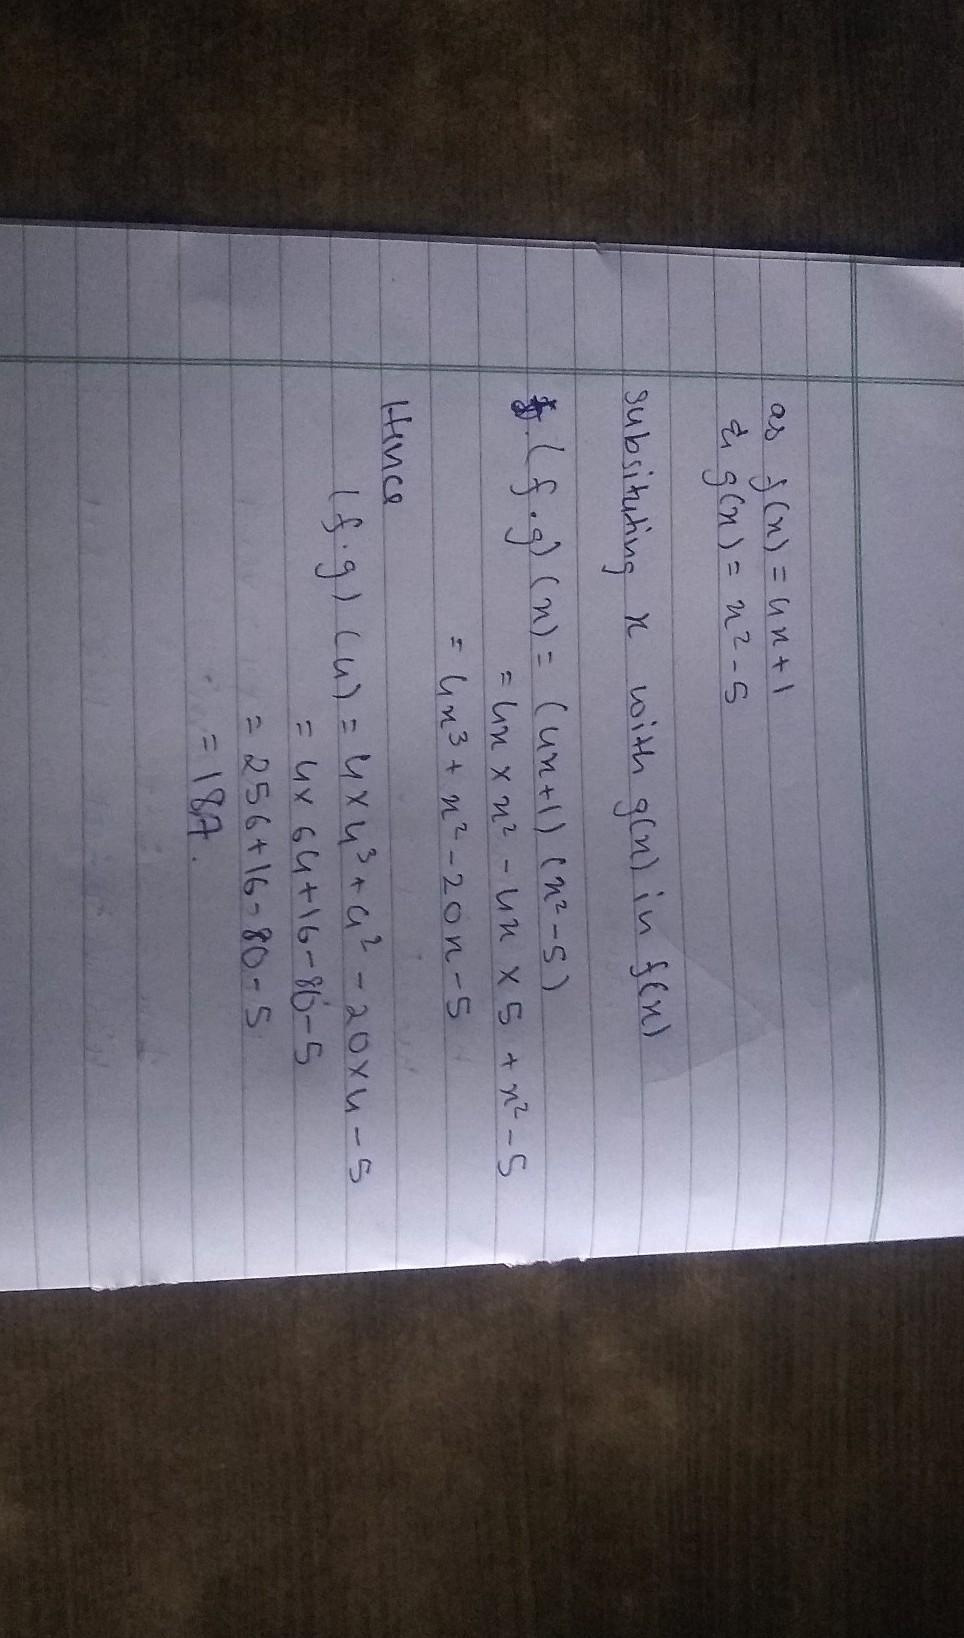 as f(x) = 4x+1
& g(x) = x²-5
subsituting x with g(x) in f(x)
(f.g) (x) = (4x+1) (x²-5)
= 4x × x² - 4x × 5 + x² - 5
= 4x³ + x² - 20x - 5
Hence
(f.g) (4) = 4×4³ + 4² - 20×4 - 5
= 4× 64+16-80-5
= 256+16-80-5
= 187.